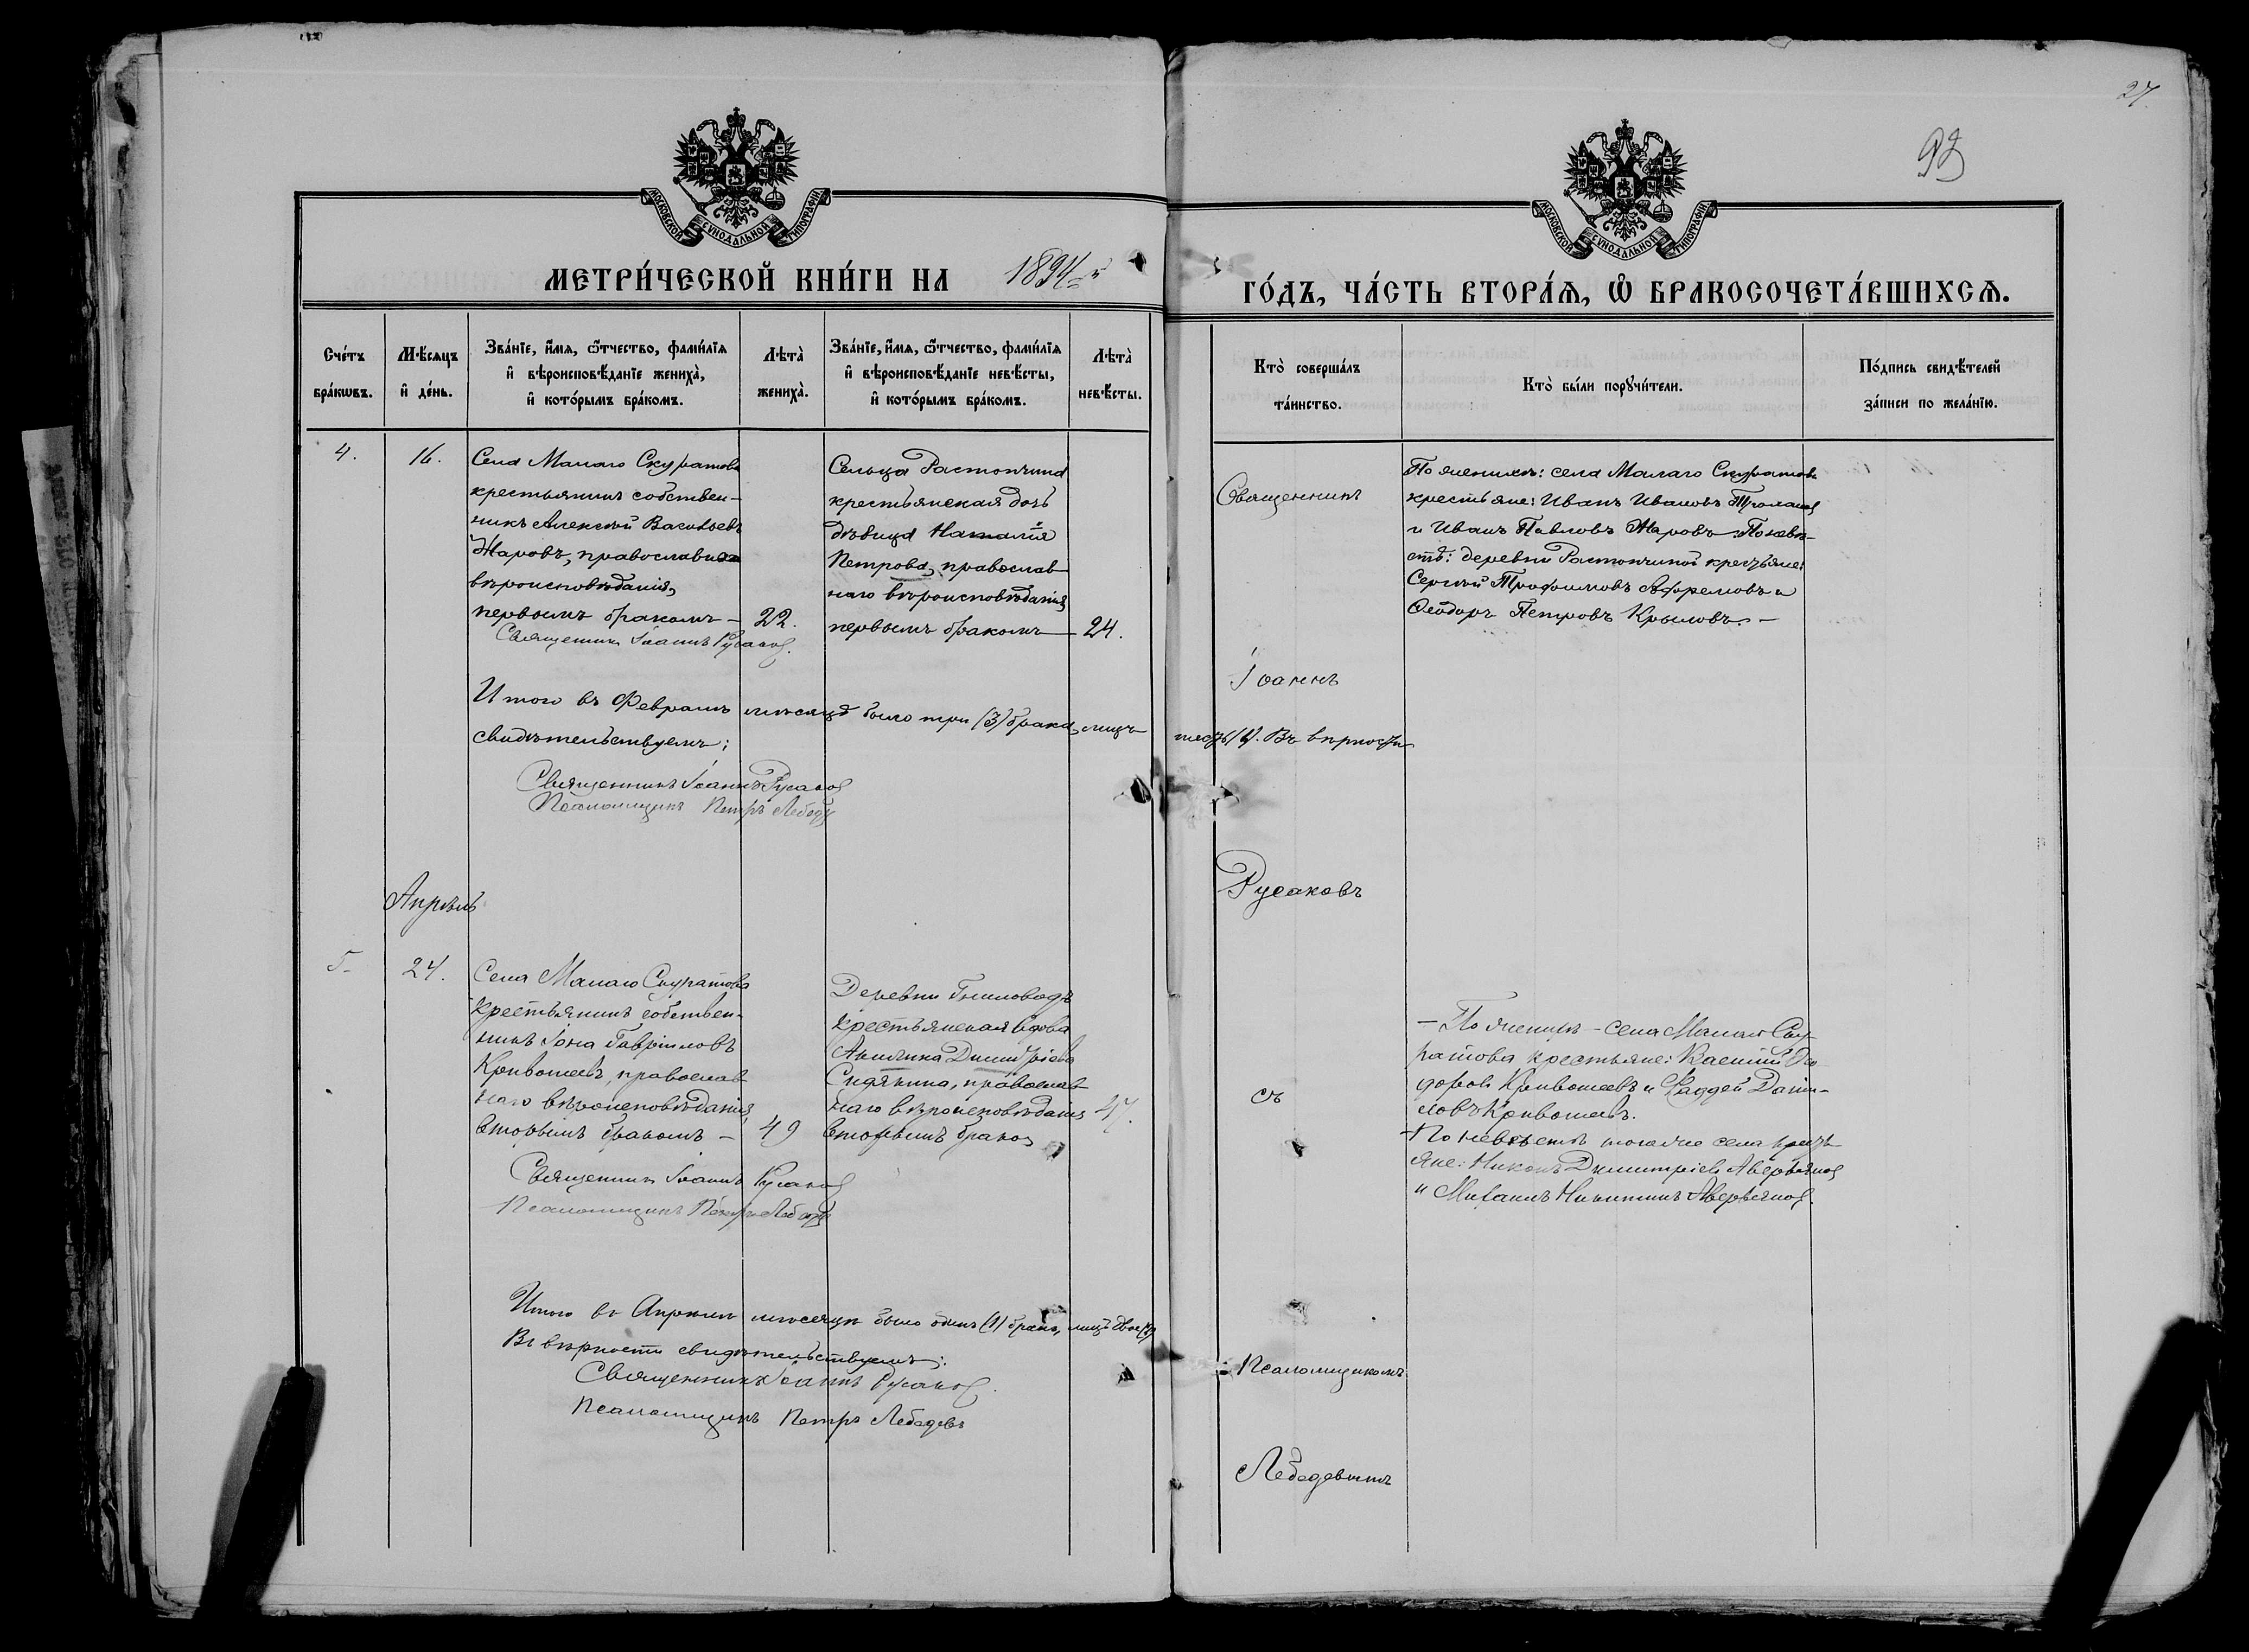 27.
93
МОСКОВСКОЙ СѴНОДАЛЬНОЙ ТИПОГРАФІИ
МОСКОВСКОЙ СѴНОДАЛЬНОЙ ТИПОГРАФІИ
МЕТРИ́ЧЕСКОЙ КНИ́ГИ НА 1894
ГО́ДЪ, ЧА́СТЬ ВТОРА́Я, Ѡ БРАКОСОЧЕТА́ВШИХСѦ.
Сче́тъ
бра́кѡвъ.
Мѣ́сяцъ
и҆ де́нь.
Зва́нїе, и҆́мя, ѻ҆́тчество, фами́лїя
и҆ вѣроисповѣ́данїе жениха̀,
и҆ кото́рымъ бра́комъ.
Лѣта̀
жениха̀.
Зва́нїе, и҆́мя, ѻ҆́тчество, фами́лїя
и҆ вѣроисповѣ́данїе невѣ́сты,
и҆ кото́рымъ бра́комъ.
Лѣта̀
невѣ́сты.
Кто̀ соверша́лъ
та́инство.
Кто̀ бы́ли порꙋчи́тели.
По́дпись свидѣ́телей
за́писи по жела́нїю.
4.
16.
Села Малаго Скуратова
крестьянинъ собствен-
никъ Алексѣй Васильевъ
Жаровъ, православнаго
вѣроисповѣданія,
первымъ бракомъ —
22.
Священникъ Іоаннъ Русаковъ.
Сельца Растопчина
крестьянская дочь
дѣвица Наталія
Петрова, православ
наго вѣроисповѣданія
первымъ бракомъ
24.
Священникъ
Іоаннъ
Русаковъ
съ
Псаломщикомъ
Лебедевымъ
По женихѣ: села Малаго Скуратова
крестьяне: Иванъ Ивановъ
и Иванъ Павловъ Жаровъ. По невѣ-
стѣ: деревни Растопчиной крестьяне:
Сергѣй Трофимовъ Афремовъ и
Ѳеодоръ Петровъ Крыловъ. —
Итого въ Февралѣ мѣсяцѣ было три (3) брака, лицъ шесть (6). Въ вѣрности
свидѣтельствуемъ:
Священникъ Іоаннъ Русаковъ
Псаломщикъ Петръ Лебедевъ
Апрѣль
5.
24.
Села Малаго Скуратова
крестьянинъ собствен-
никъ Іона Гавріиловъ
Кривошеевъ, православ
наго вѣроисповѣданія,
вторымъ бракомъ —
49
Деревни
крестьянская вдова
Акилина Димитріева
Сидякина, православ
наго вѣроисповѣданія
вторымъ бракомъ
47.
Священникъ Іоаннъ Русаковъ
Псаломщикъ Петръ Лебедевъ
— По женихѣ — села Малаго Ску-
ратова крестьяне: Василій Ѳео-
доровъ Кривошеевъ и Ѳаддей Даніи-
ловъ Кривошеевъ.
— По невѣстѣ того же села кресть-
яне: Никонъ Димитріевъ Аверьяновъ
и Михаилъ Никитинъ Аверьяновъ.
Итого въ Апрѣлѣ мѣсяцѣ было одинъ (1) бракъ, лицъ двое (2)
Въ вѣрности свидѣтельствуемъ:
Священникъ Іоаннъ Русаковъ.
Псаломщикъ Петръ Лебедевъ